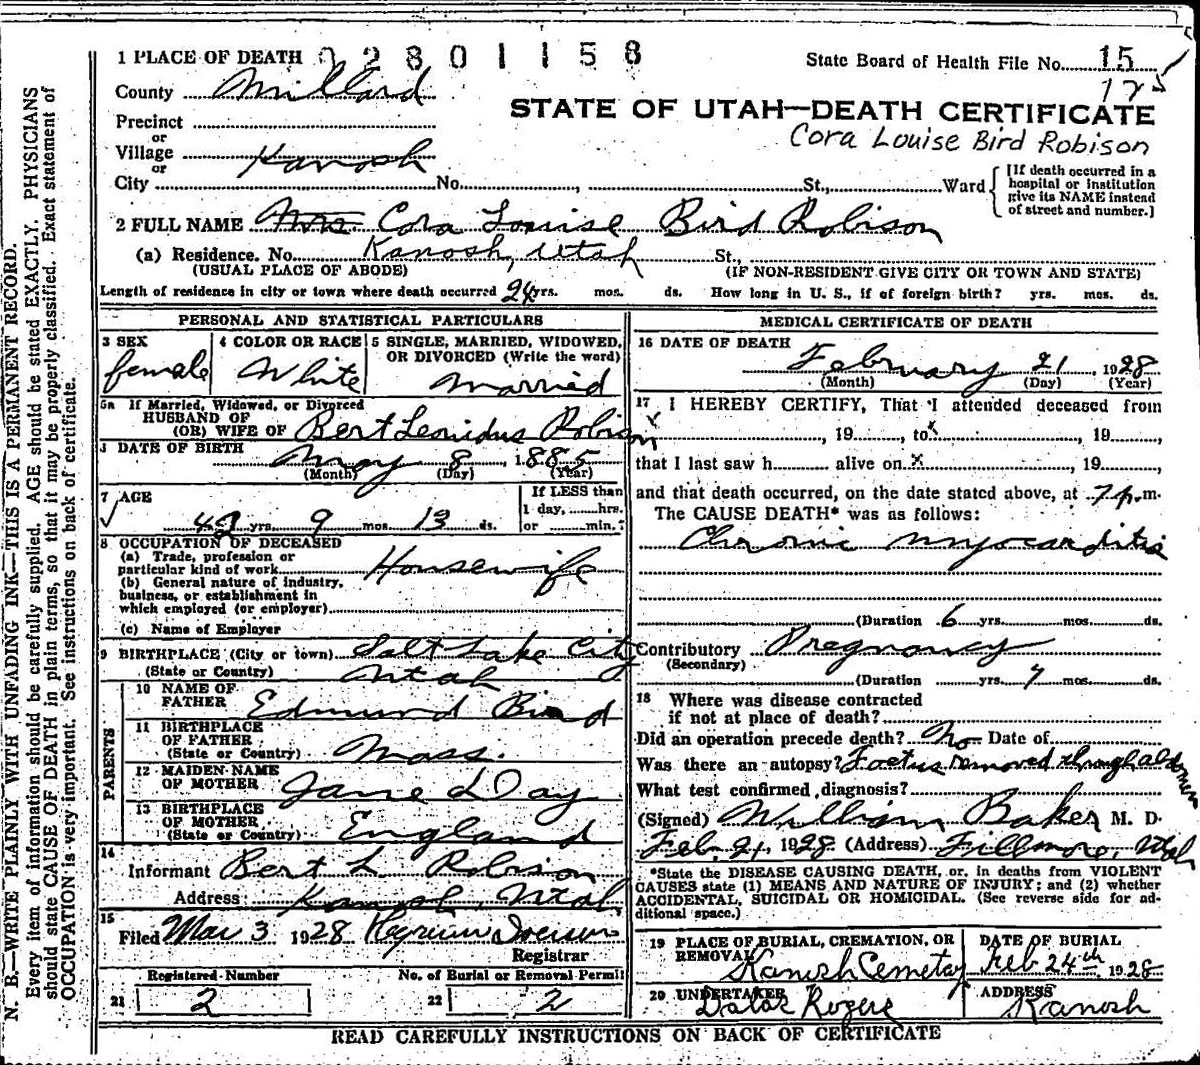 1 PLACE OF DEATH 02801158
State Board of Health File No. 15
125
County Millard
STATE OF UTAH—DEATH CERTIFICATE
Precinct
Cora Louise Bird Robison
or
Village Kanosh
or
City No. , St., Ward
[If death occurred in a
hospital or institution
give its NAME instead
of street and number.]
2 FULL NAME Mrs. Cora Louise Bird Robison
(a) Residence. No. Kanosh, Utah St.,
(USUAL PLACE OF ABODE) (IF NON-RESIDENT GIVE CITY OR TOWN AND STATE)
Length of residence in city or town where death occurred 24 yrs. mos. ds. How long in U. S., if of foreign birth? yrs. mos. ds.
PERSONAL AND STATISTICAL PARTICULARS
3 SEX female
4 COLOR OR RACE White
5 SINGLE, MARRIED, WIDOWED,
OR DIVORCED (Write the word)
Married
5a If Married, Widowed, or Divorced
HUSBAND OF
(OR) WIFE OF Bert Leonidus Robison
DATE OF BIRTH
May 8, 1885
(Month) (Day) (Year)
7 AGE
42 yrs. 9 mos. 13 ds.
If LESS than
1 day, hrs.
or min.?
8 OCCUPATION OF DECEASED
(a) Trade, profession or
particular kind of work Housewife
(b) General nature of industry,
business, or establishment in
which employed (or employer)
(c) Name of Employer
9 BIRTHPLACE (City or town) Salt Lake City
(State or Country) Utah
PARENTS
10 NAME OF
FATHER Edmund Bird
11 BIRTHPLACE
OF FATHER
(State or Country) Mass.
12 MAIDEN NAME
OF MOTHER Jane Day
13 BIRTHPLACE
OF MOTHER
(State or Country) England
14
Informant Bert L. Robison
Address Kanosh, Utah
15
Filed Mar 3 1928
Registrar
Registered Number
21 2
No. of Burial or Removal Permit
22 2
MEDICAL CERTIFICATE OF DEATH
16 DATE OF DEATH
February 21, 1928
(Month) (Day) (Year)
17 I HEREBY CERTIFY, That I attended deceased from
x , 19 , to x , 19 ,
that I last saw h alive on x , 19 ,
and that death occurred, on the date stated above, at 7 p.m.
The CAUSE DEATH* was as follows:
Chronic Myocarditis
(Duration 6 yrs. mos. ds.
Contributory Pregnancy
(Secondary)
(Duration yrs. 7 mos. ds.
18 Where was disease contracted
if not at place of death?
Did an operation precede death? No Date of
Was there an autopsy? Foetus removed through abdomen
What test confirmed diagnosis?
(Signed) William Baker M. D.
Feb. 21, 1928 (Address) Fillmore, Utah
*State the DISEASE CAUSING DEATH, or, in deaths from VIOLENT
CAUSES state (1) MEANS AND NATURE OF INJURY; and (2) whether
ACCIDENTAL, SUICIDAL OR HOMICIDAL. (See reverse side for ad-
ditional space.)
19 PLACE OF BURIAL, CREMATION, OR
REMOVAL
Kanosh Cemetery
DATE OF BURIAL
Feb 24th 1928
20 UNDERTAKER
Rogers
ADDRESS
Kanosh
READ CAREFULLY INSTRUCTIONS ON BACK OF CERTIFICATE
N. B.—WRITE PLAINLY WITH UNFADING INK—THIS IS A PERMANENT RECORD.
Every item of information should be carefully supplied. AGE should be stated EXACTLY. PHYSICIANS
should state CAUSE OF DEATH in plain terms, so that it may be properly classified. Exact statement of
OCCUPATION is very important. See instructions on back of certificate.